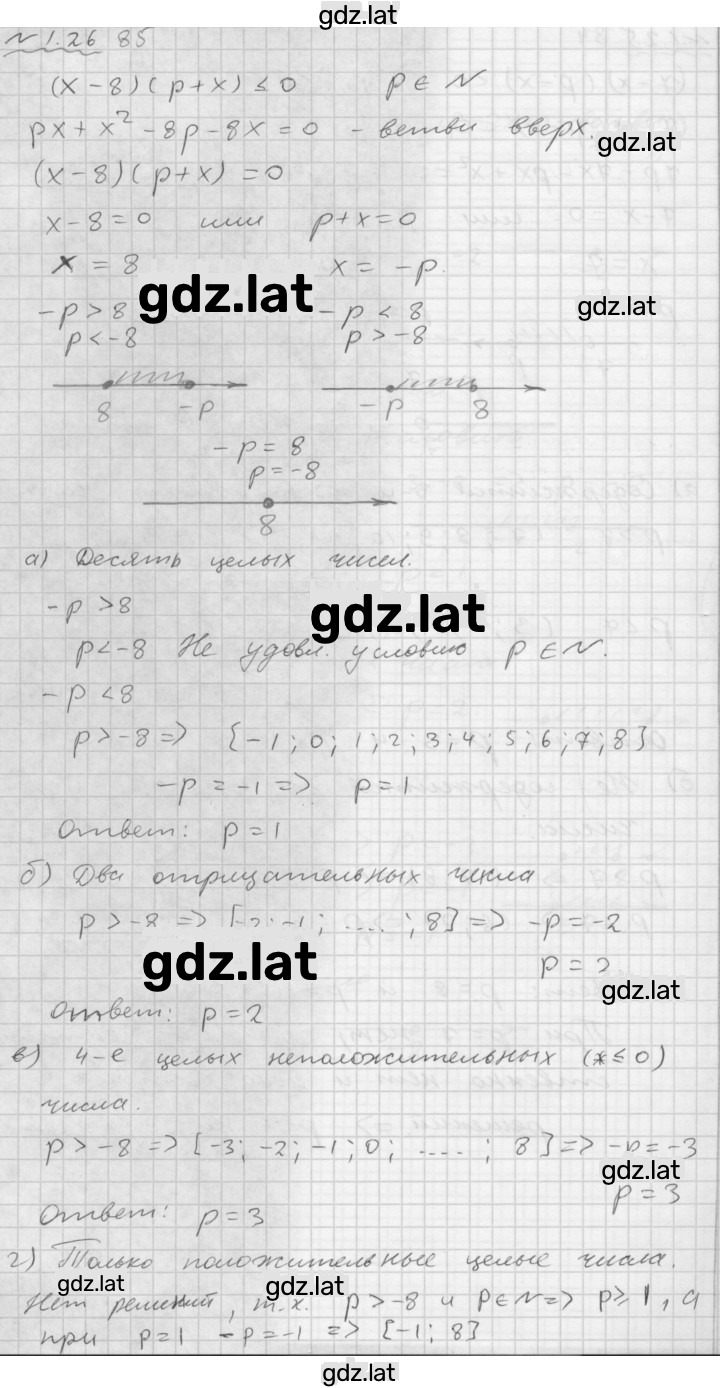 gdz.lat
№ 1.26 85
(x-8)(p+x) ≤ 0 p ∈ N
px + x² - 8p - 8x = 0 - ветви вверх.
gdz.lat
(x-8)(p+x) = 0
x-8=0 или p+x=0
x = 8 x = -p.
gdz.lat
gdz.lat
-p > 8 -p < 8
p < -8 p > -8
8 -p -p 8
-p = 8
p = -8
8
а) Десять целых чисел.
-p > 8
gdz.lat
p < -8 Не удовл. условию p ∈ N.
-p < 8
p > -8 => [-1; 0; 1; 2; 3; 4; 5; 6; 7; 8]
-p = -1 => p = 1
Ответ: p = 1
б) Два отрицательных числа
p > -8 => [-2; -1; ....; 8] => -p = -2
gdz.lat
p = 2
gdz.lat
Ответ: p = 2
в) 4-е целых неположительных (x ≤ 0)
числа.
p > -8 => [-3; -2; -1; 0; ....; 8] => -p = -3
gdz.lat
p = 3
Ответ: p = 3
г) Только положительные целые числа.
gdz.lat
gdz.lat
Нет решений, т.х. p > -8 и p ∈ N => p ≥ 1, а
при p = 1 -p = -1 => [-1; 8]
gdz.lat